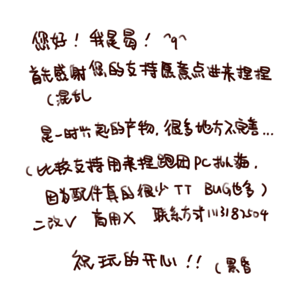 您好！我是曷！^q^
首先感谢您的支持愿意点进来捏捏
（混乱
是一时兴起的产物，很多地方不完善…
（比较支持用来捏跑团PC扒猫，
因为配件真的很少TT BUG也多）
二改V 商用X 联系方式1113182504
祝玩的开心!!（累昏